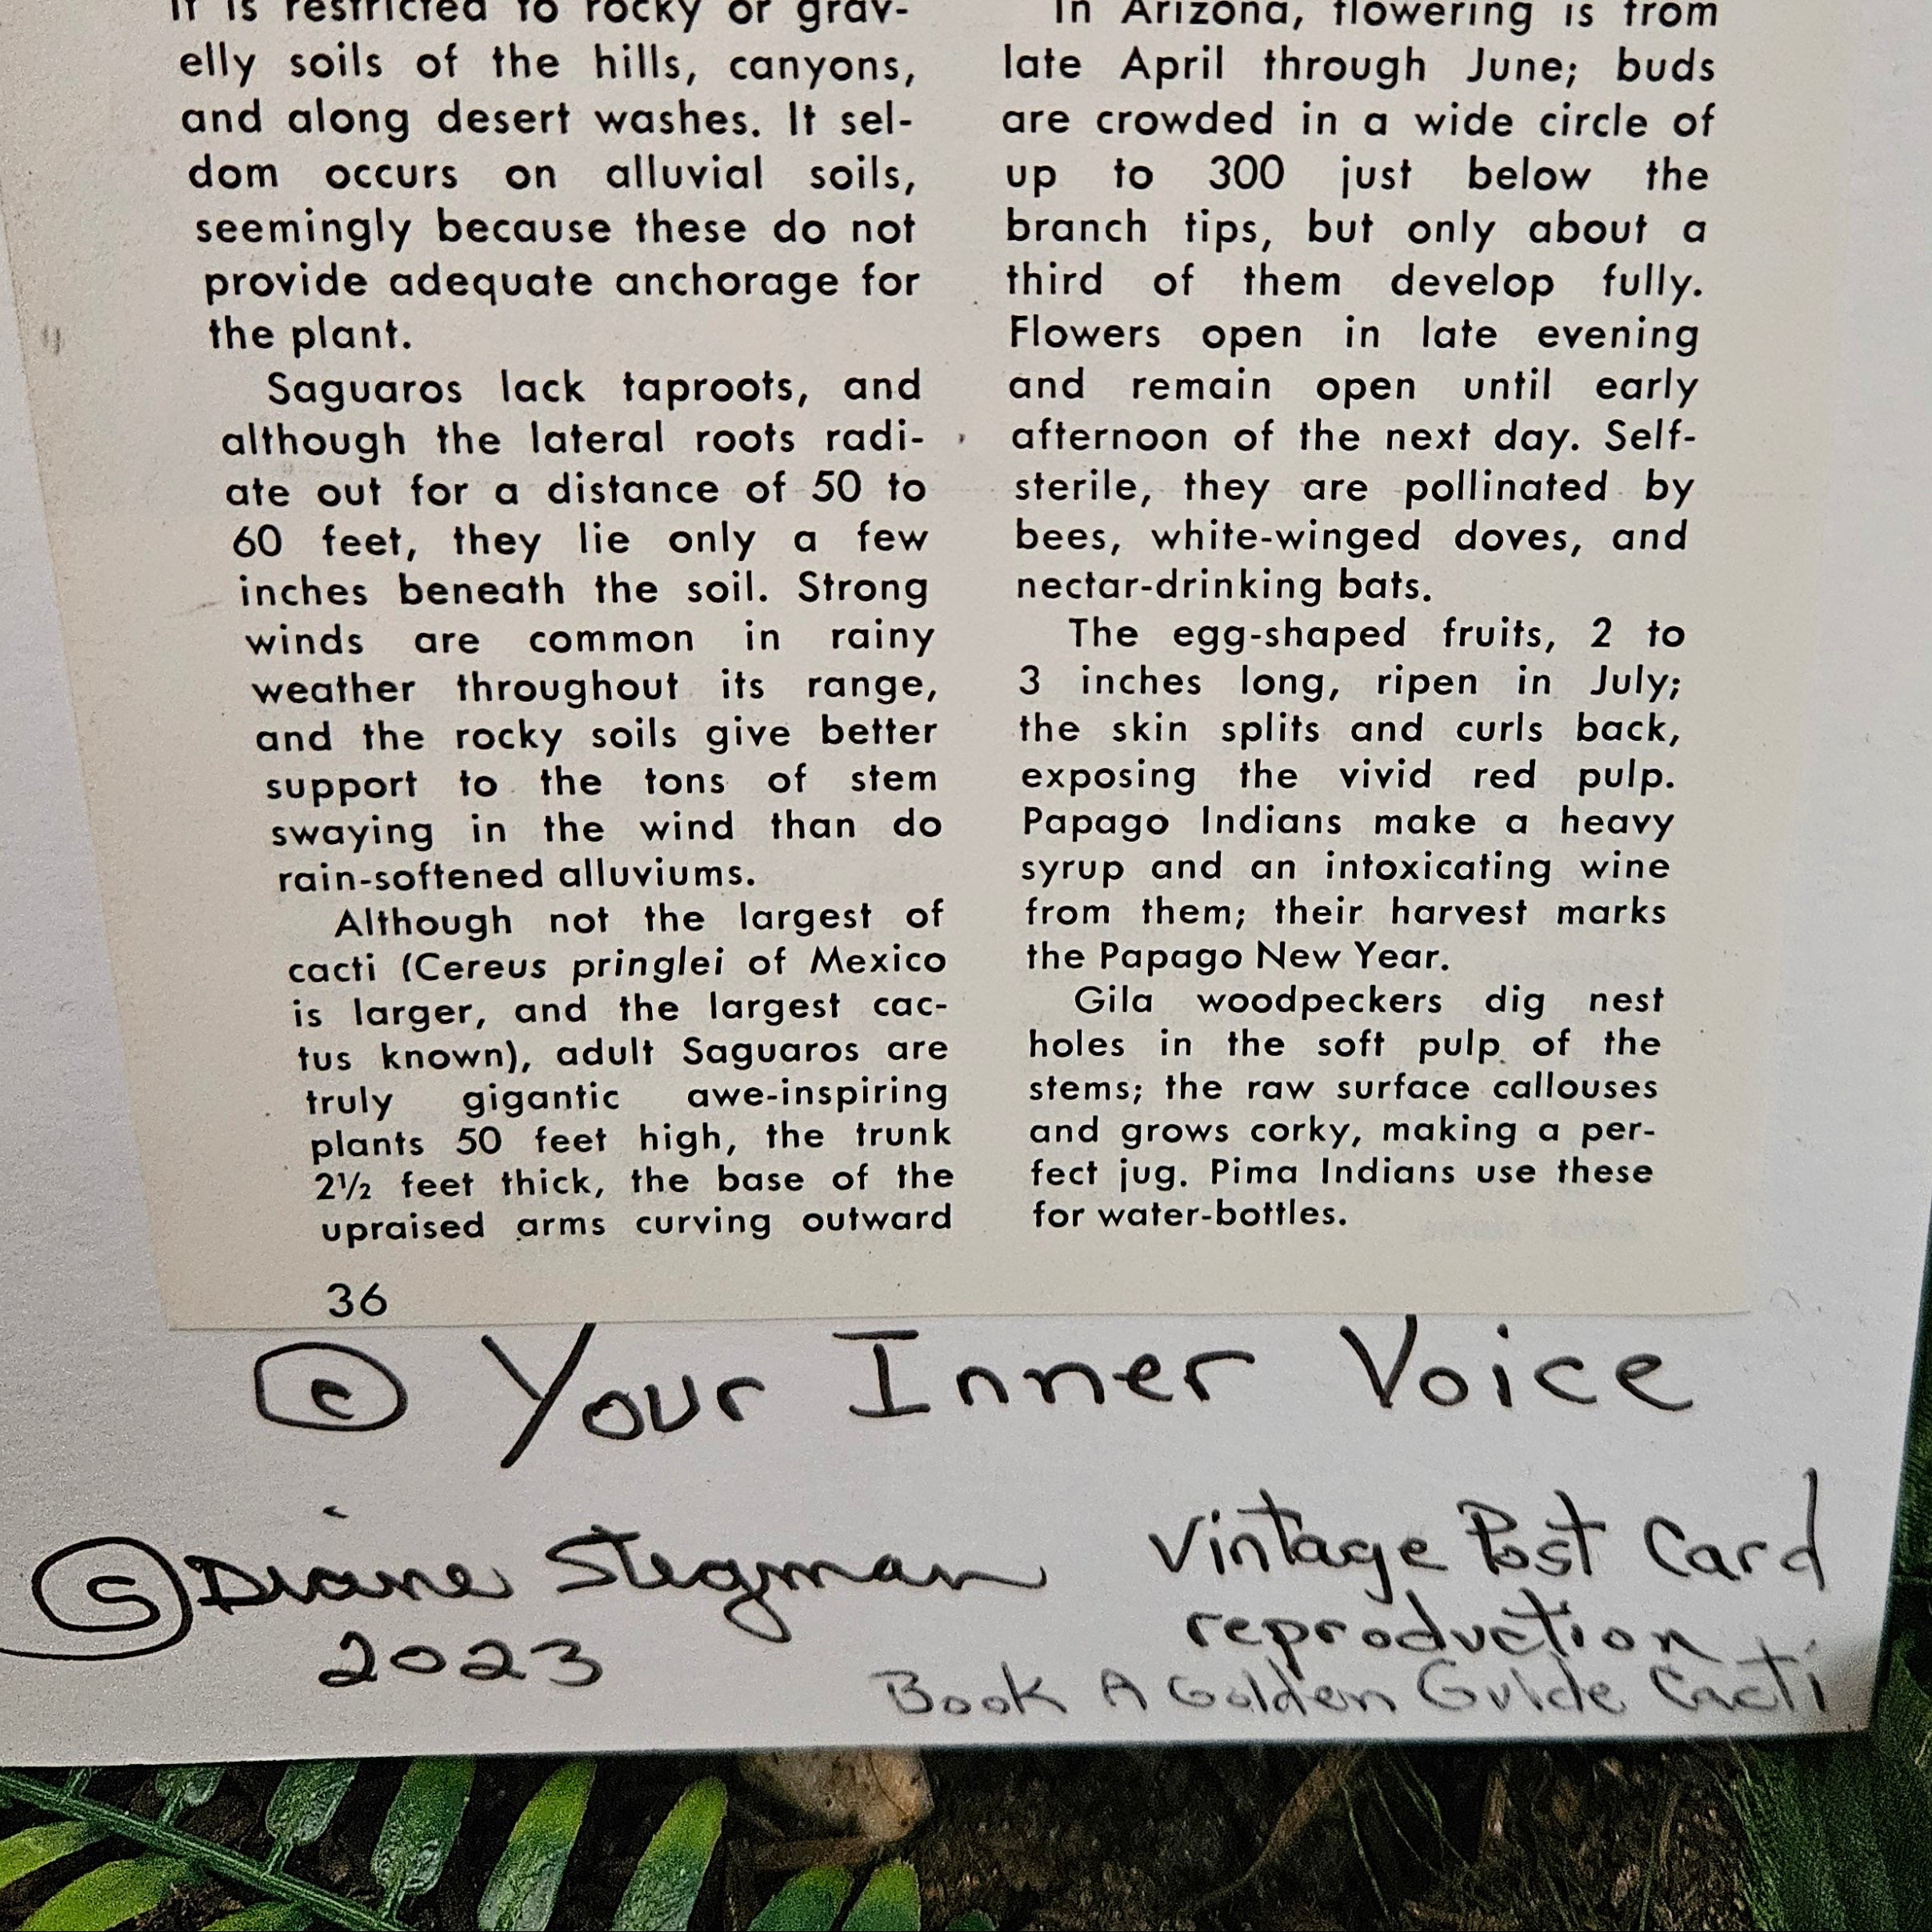 It is restricted to rocky or grav-
elly soils of the hills, canyons,
and along desert washes. It sel-
dom occurs on alluvial soils,
seemingly because these do not
provide adequate anchorage for
the plant.
Saguaros lack taproots, and
although the lateral roots radi-
ate out for a distance of 50 to
60 feet, they lie only a few
inches beneath the soil. Strong
winds are common in rainy
weather throughout its range,
and the rocky soils give better
support to the tons of stem
swaying in the wind than do
rain-softened alluviums.
Although not the largest of
cacti (Cereus pringlei of Mexico
is larger, and the largest cac-
tus known), adult Saguaros are
truly gigantic awe-inspiring
plants 50 feet high, the trunk
2½ feet thick, the base of the
upraised arms curving outward
36
In Arizona, flowering is from
late April through June; buds
are crowded in a wide circle of
up to 300 just below the
branch tips, but only about a
third of them develop fully.
Flowers open in late evening
and remain open until early
afternoon of the next day. Self-
sterile, they are pollinated by
bees, white-winged doves, and
nectar-drinking bats.
The egg-shaped fruits, 2 to
3 inches long, ripen in July;
the skin splits and curls back,
exposing the vivid red pulp.
Papago Indians make a heavy
syrup and an intoxicating wine
from them; their harvest marks
the Papago New Year.
Gila woodpeckers dig nest
holes in the soft pulp of the
stems; the raw surface callouses
and grows corky, making a per-
fect jug. Pima Indians use these
for water-bottles.
© Your Inner Voice
Ⓢ Diane Stegman
2023
Vintage Post Card
reproduction
Book A Golden Guide Cacti